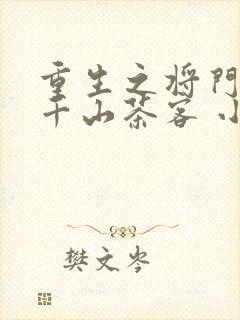 重生之将门
千山茶客 小
樊文岑